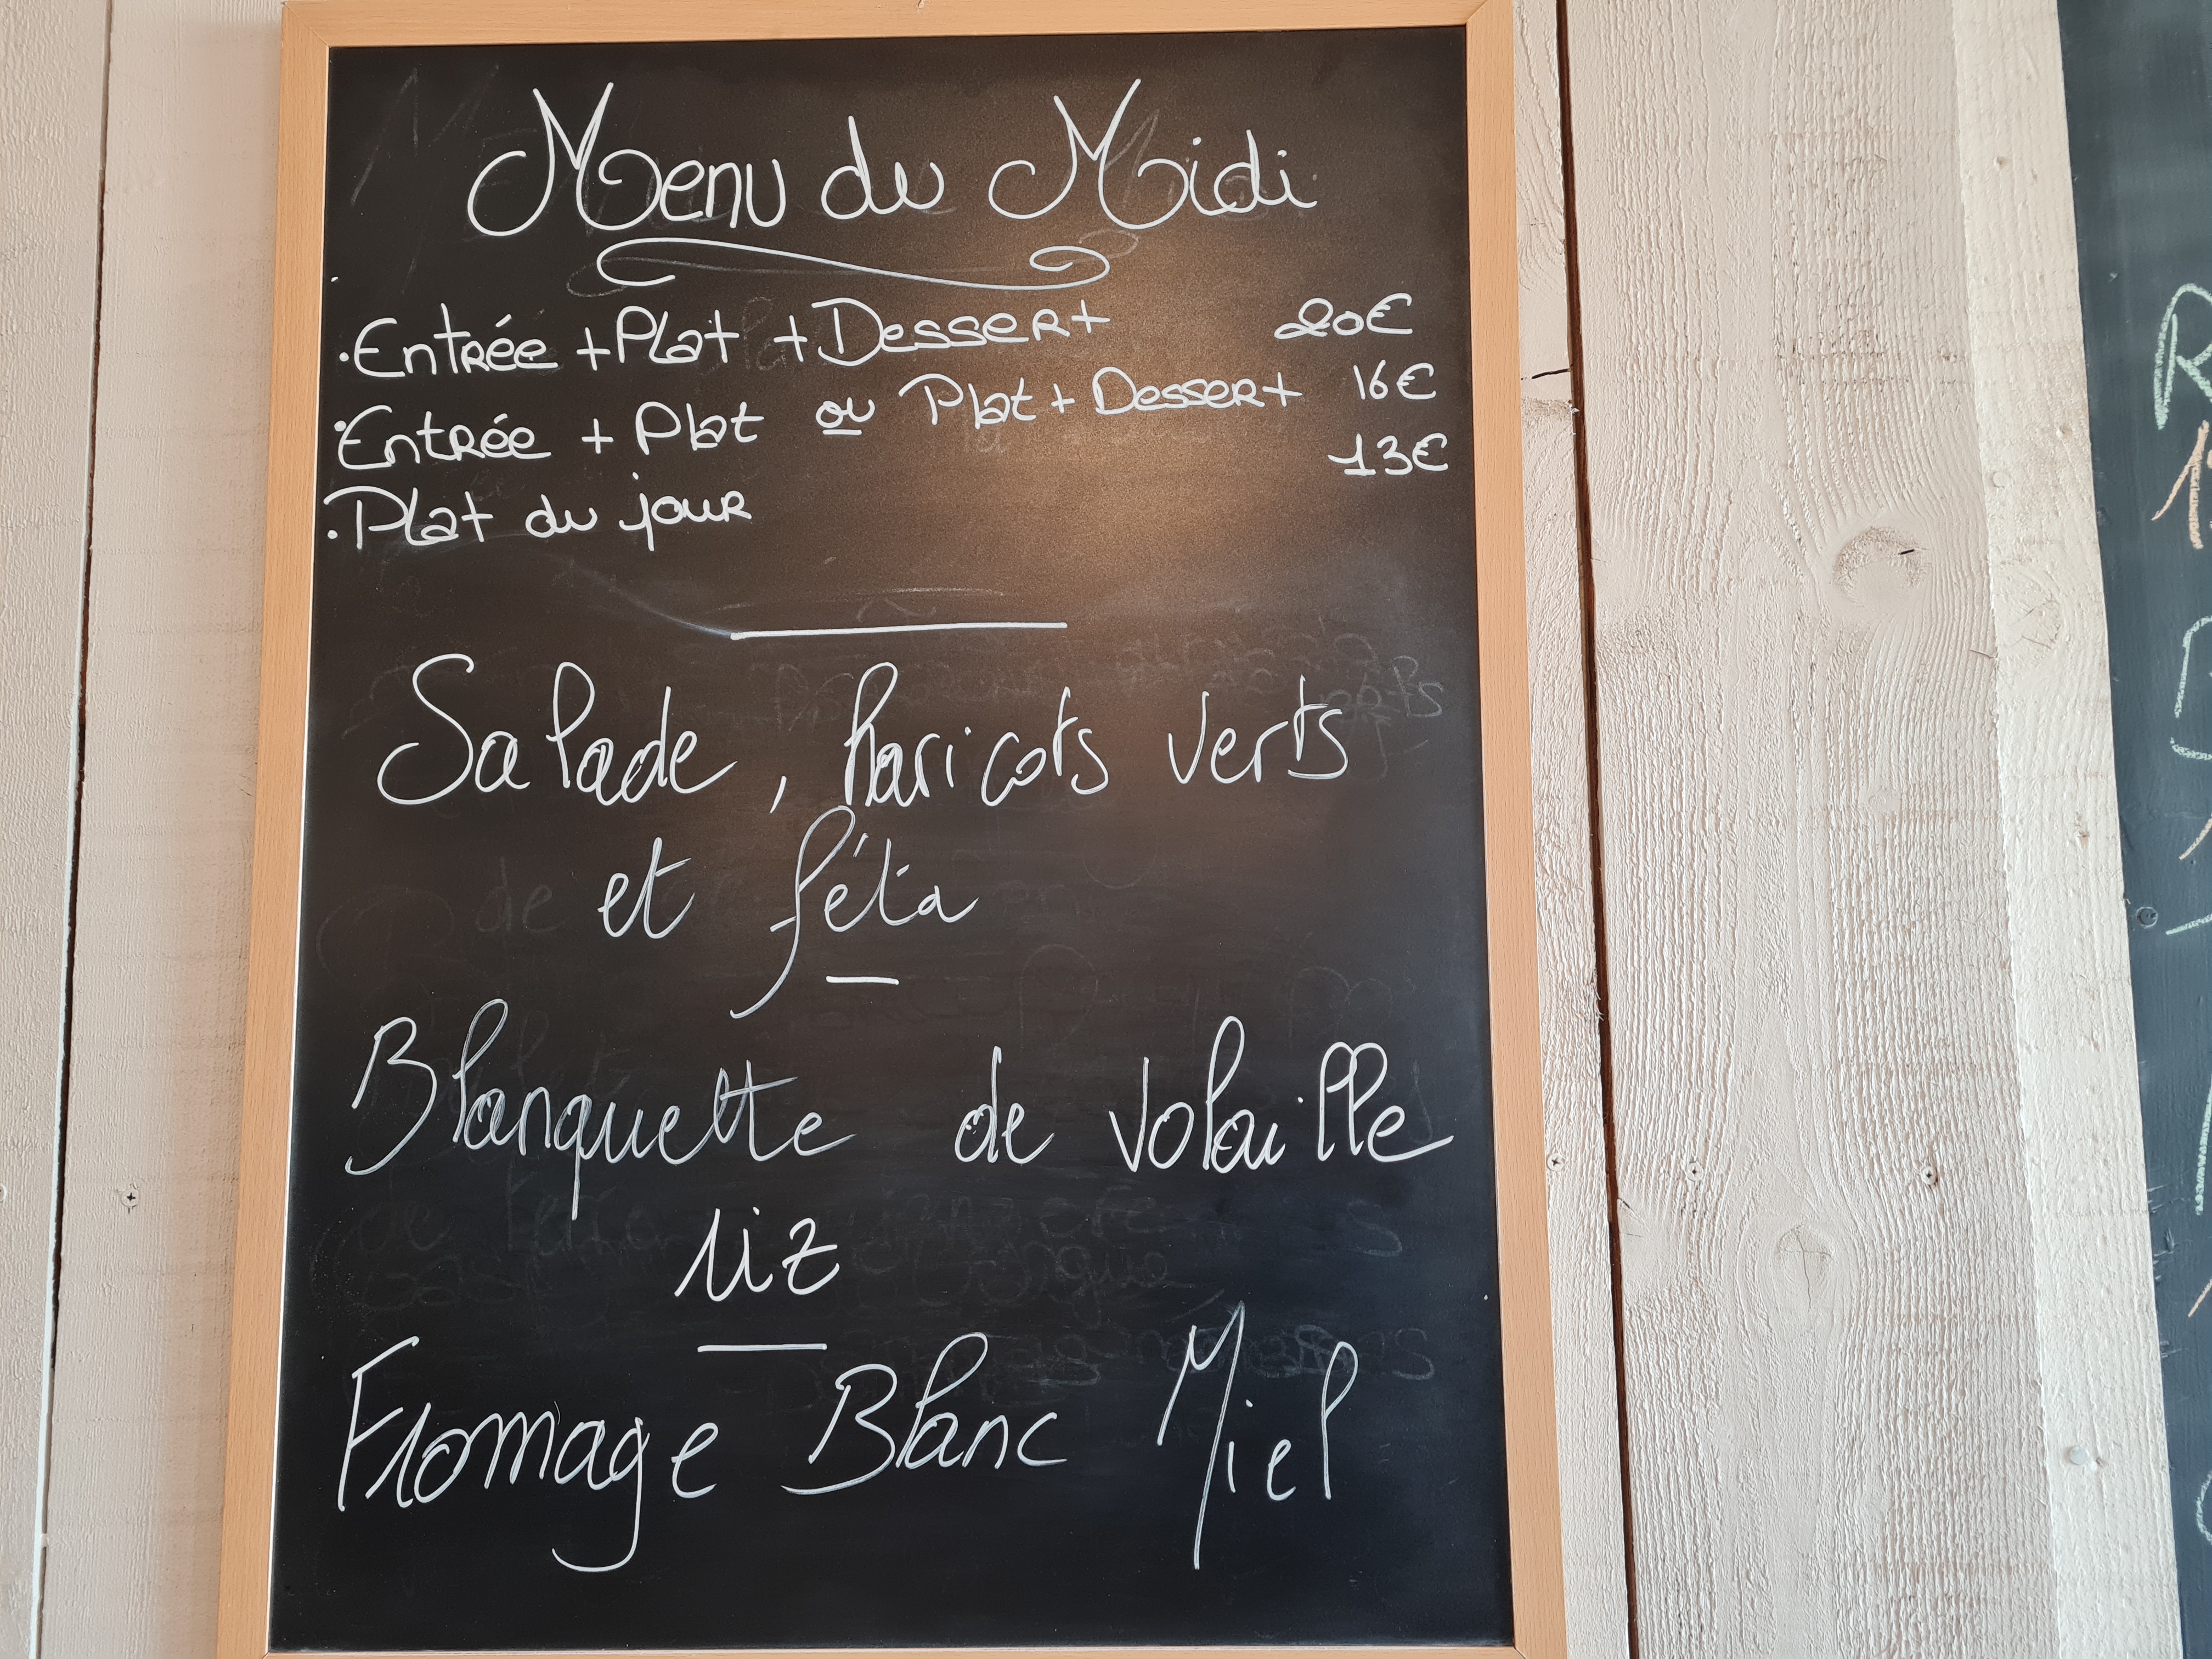 Menu du Midi
· Entrée + Plat + Dessert 20€
· Entrée + Plat ou Plat + Dessert 16€
· Plat du jour 13€
Salade, haricots verts
et féta
Blanquette de volaille
riz
Fromage Blanc Miel